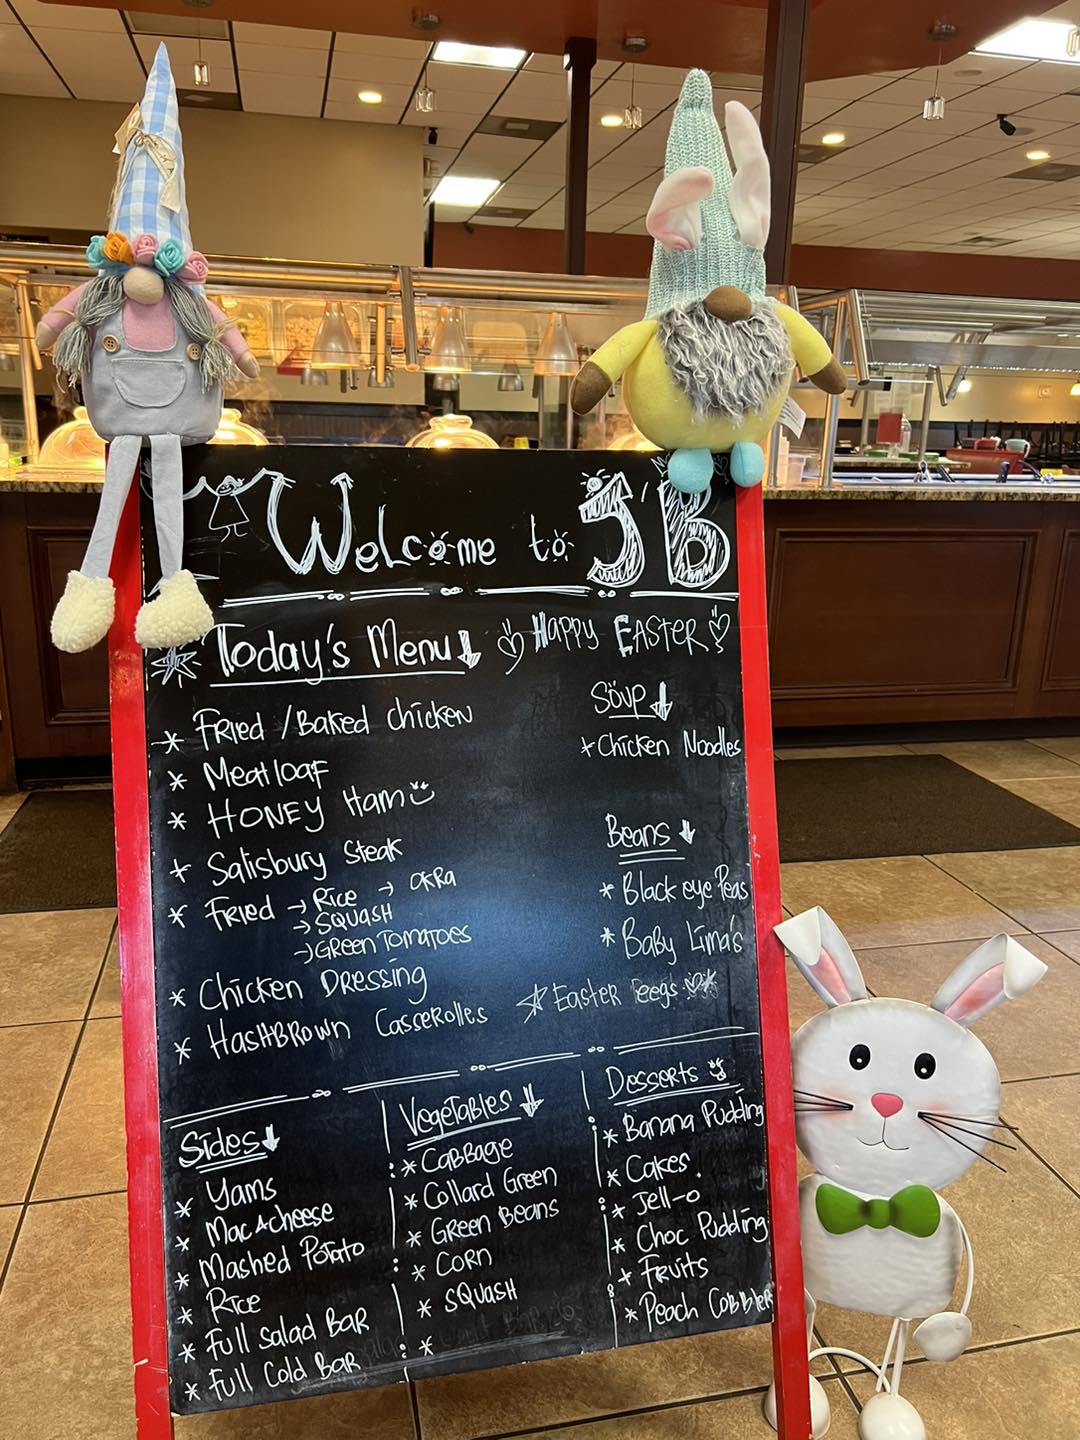 Welcome to J'B
Today's Menu
Happy Easter
* Fried / Baked chicken
* Meatloaf
* Honey Ham
* Salisbury Steak
* Fried → Rice → Okra
→ Squash
→ Green Tomatoes
* Chicken Dressing
* Hashbrown Casserolles
Soup
* Chicken Noodles
Beans
* Black eye Peas
* Baby Lima's
Easter
Sides
* Yams
* Mac & cheese
* Mashed Potato
* Rice
* Full salad Bar
* Full Cold Bar
Vegetables
* Cabbage
* Collard Green
* Green Beans
* Corn
* Squash
*
Desserts
* Banana Pudding
* Cakes.
* Jell-o
* Choc Pudding
* Fruits
* Peach Cobbler